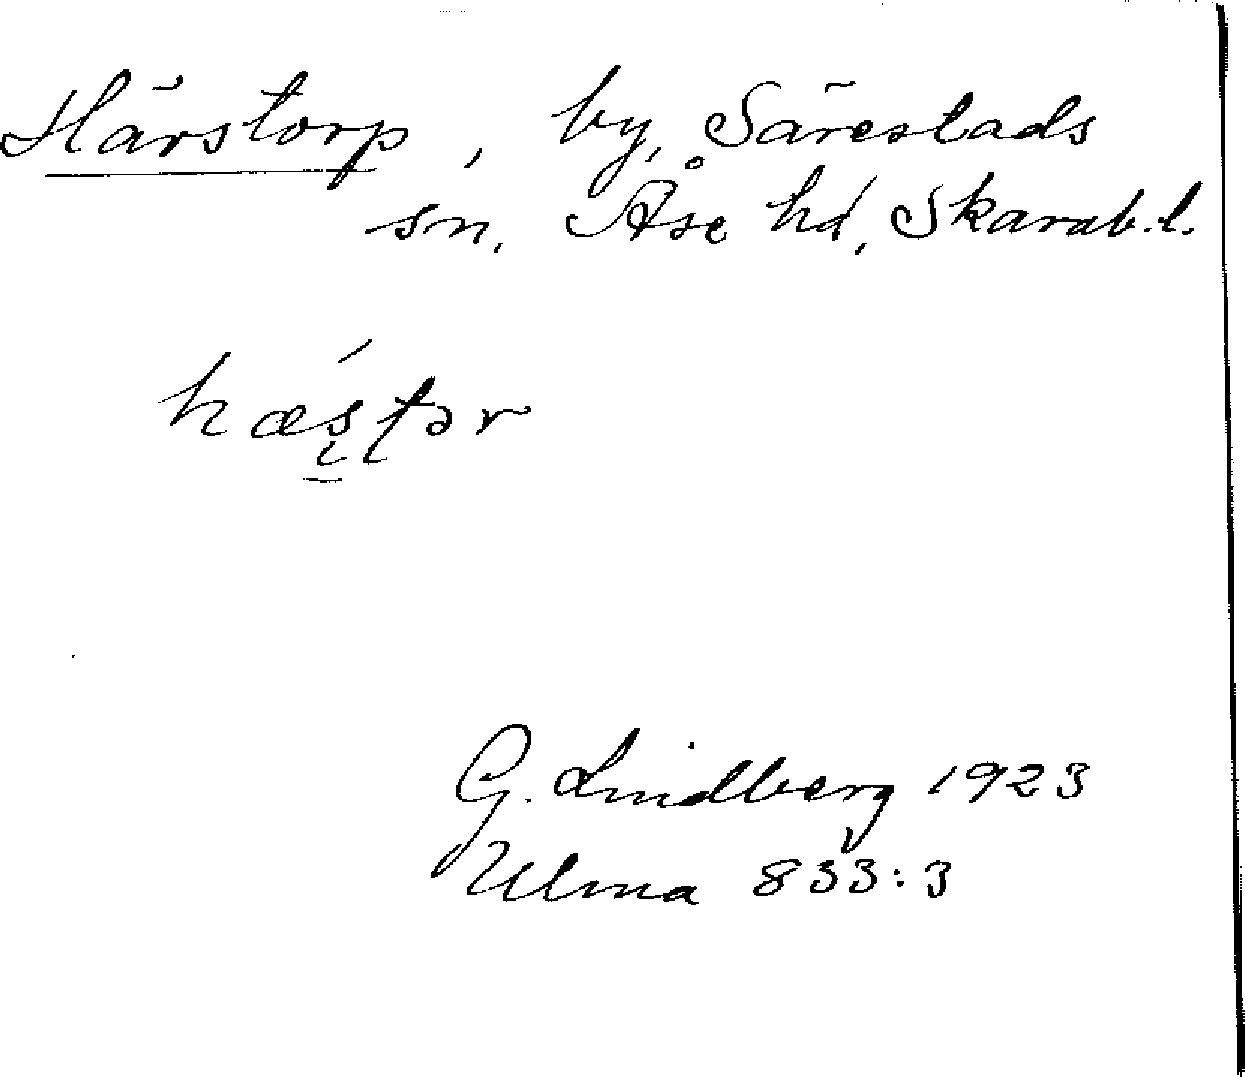 Härstorp, by, Särestads
sn, Åse hd, Skarab.l.
hǽʂʈər
G. Lindberg 1923
Ulma 833:3